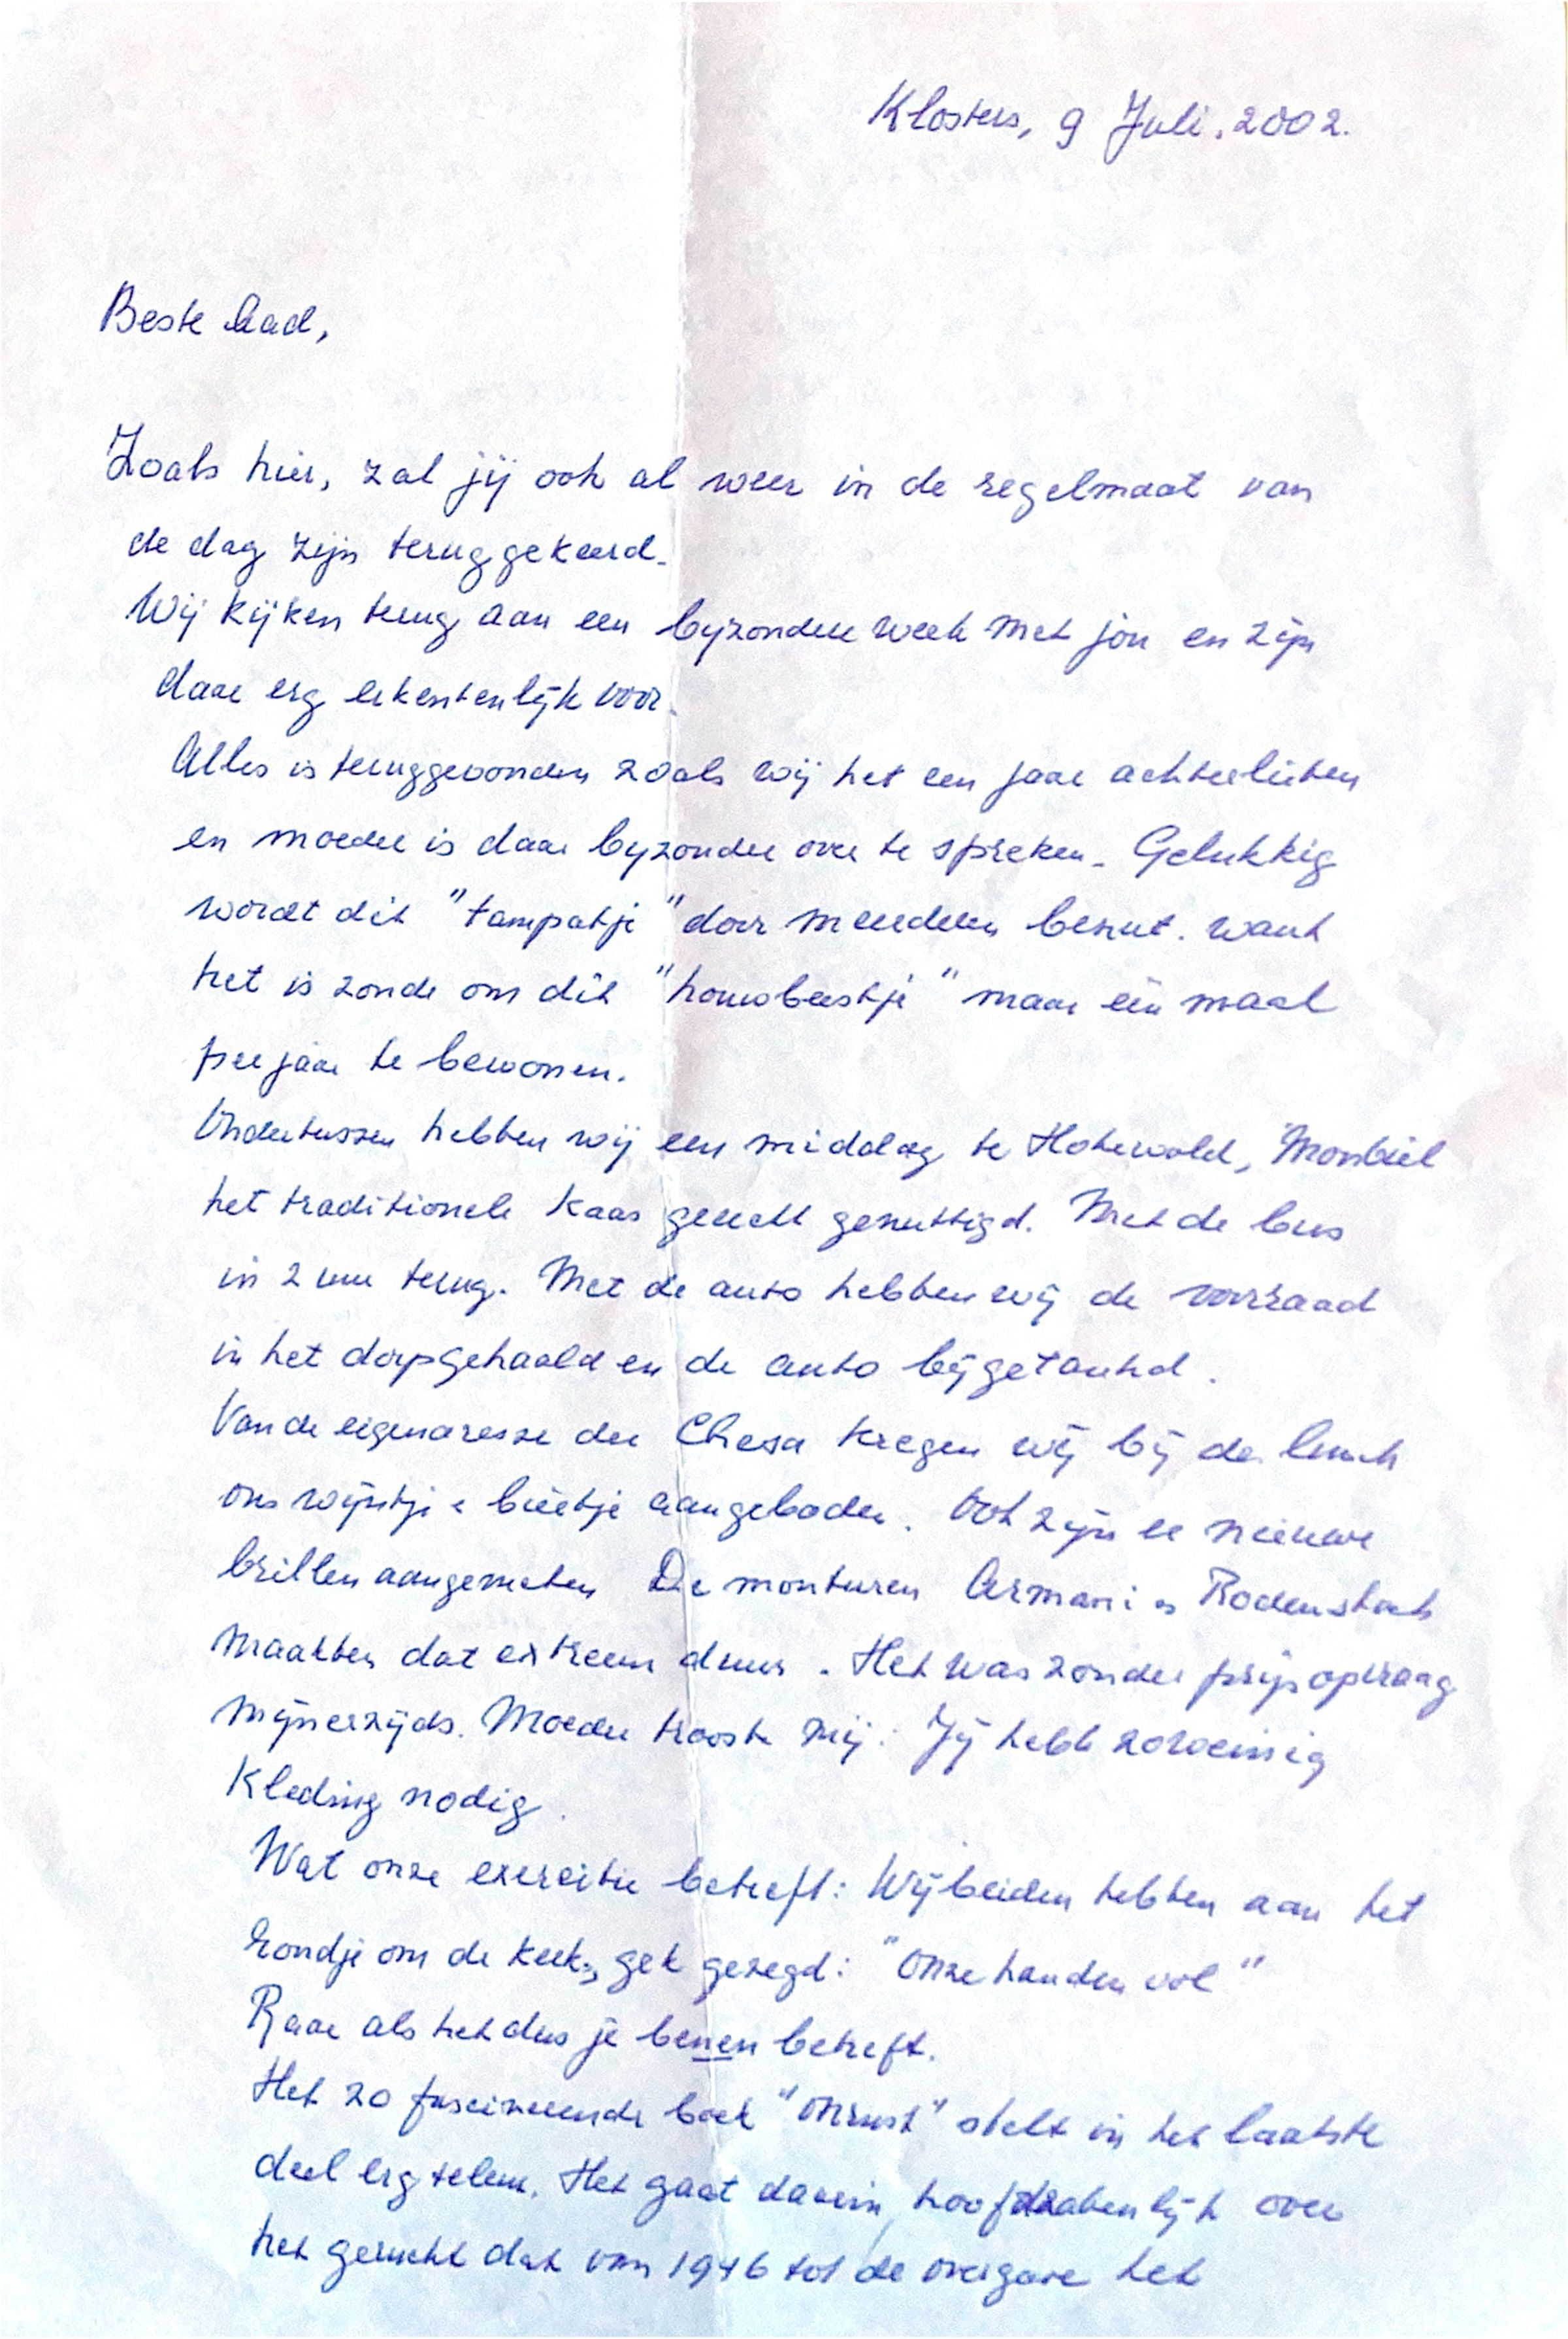 Klosters, 9 Juli. 2002.
Beste Aad,
Zoals hier, zal jij ook al weer in de regelmaat van
de dag zijn teruggekeerd.
Wij kijken terug aan een byzondere week met jou en zijn
daar erg erkentenlijk voor.
Alles is teruggevonden zoals wij het een jaar achterlieten
en moeder is daar byzonder over te spreken. Gelukkig
wordt dit "tampatje" door meerderen benut. want
het is zonde om dit "homobeestje" maar één maal
per jaar te bewonen.
Ondertussen hebben wij een middag te Hohewald, Monbiel
het traditionele kaas gerecht genuttigd. Met de bus
in 2 uur terug. Met de auto hebben wij de voorraad
in het dorp gehaald en de auto bijgetankt.
Van de eigenaresse der Chesa kregen wij bij de lunch
ons wijntje & biertje aangeboden. Ook zijn er nieuwe
brillen aangemeten De monturen Armani en Rodenstock
maakten dat extreem duur. Het was zonder prijsopvraag
mijnerzijds. Moeder trooste mij: Jij hebt zo weinig
Kleding nodig.
Wat onze exercitie betreft: Wij beiden hebben aan het
rondje om de kerk, gek gezegd: "Onze handen vol"
Raar als het dus je benen betreft.
Het zo fascinerende boek "Onrust" stelt in het laatste
deel erg teleur. Het gaat daarin hoofdzakenlijk over
het gerucht dat van 1946 tot de overgave het